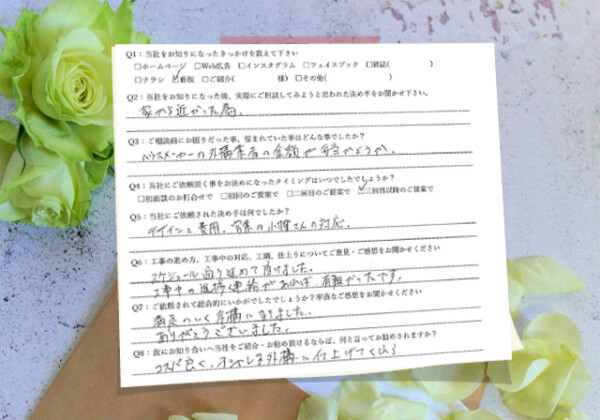 Q1：当社をお知りになったきっかけを教えて下さい
□ホームページ □Web広告 □インスタグラム □フェイスブック □雑誌( )
□チラシ ☑看板 □ご紹介( 様) □その他( )
Q2：当社をお知りになった後、実際にご相談してみようと思われた決め手をお聞かせ下さい。
家から近かった為。
Q3：ご相談前にお困りだった事、悩まれていた事はどんな事でしたか？
ハウスメーカーの外構業者の金額が妥当かどうか。
Q4：当社にご依頼頂く事をお決めになったタイミングはいつでしたでしょうか？
□初面談のお打合せで □初回のご提案で □二回目のご提案で ☑三回目以降のご提案で
Q5：当社にご依頼された決め手は何でしたか？
デザインと費用。営業の小澤さんの対応。
Q6：工事の進め方、工事中の対応、工期、仕上りについてご意見・ご感想をお聞かせください
スケジュール通り進めて頂けました。
工事中の進捗連絡があれば、有難かったです。
Q7：ご依頼されて総合的にいかがでしたでしょうか？率直なご感想をお聞かせください
満足のいく外構になりました。
ありがとうございました。
Q8：仮にお知り合いへ当社をご紹介・お勧め頂けるならば、何と言ってお勧めされますか？
コスパ良く、オシャレな外構に仕上げてくれる